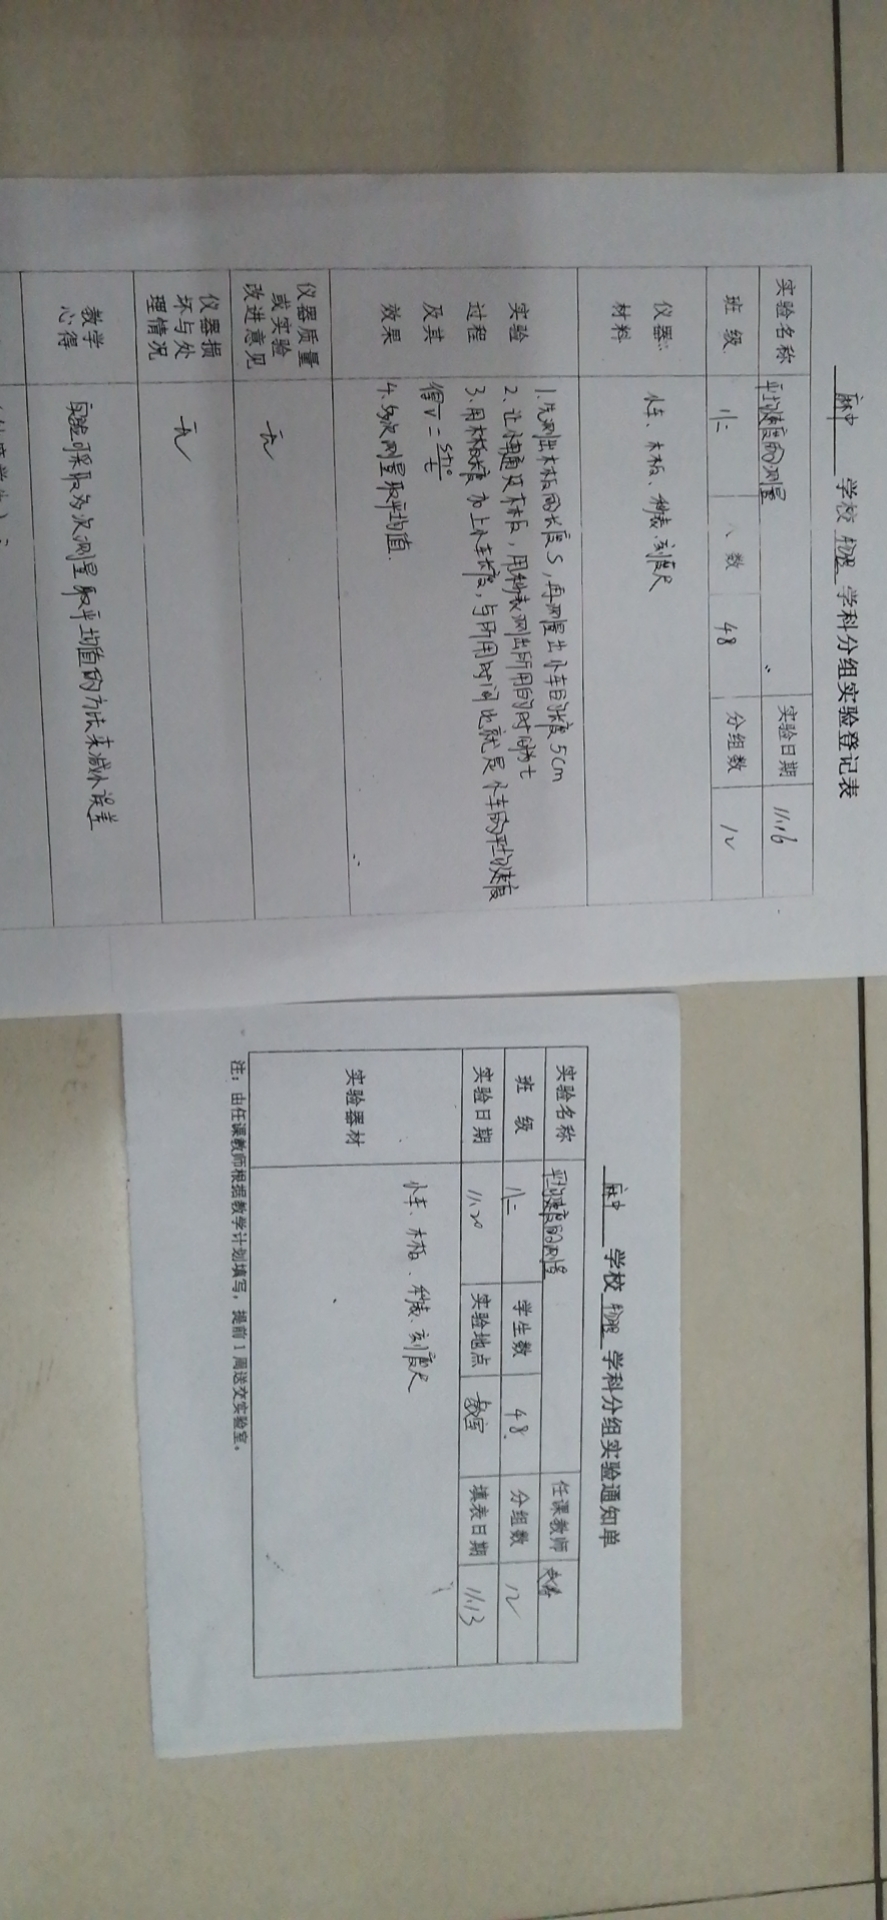 麻中 学校 物理 学科分组实验登记表
实验名称 平均速度的测量 实验日期 11.16
班 级 八二 人数 48 分组数 12
仪器: 材料 小车、木板、秒表、刻度尺
实验过程及其效果
1.先测出木板的长度S,再测量出小车的长度5cm
2、让小车通过木板,用秒表测出所用的时间为t
3、用木板长度加上小车长度,与所用时间比就是小车的平均速度
4、多次测量取平均值.
仪器质量或实验改进意见 无
仪器损坏与处理情况 无
教学心得 实验可采取多次测量取平均值的方法来减小误差
麻中 学校 物理 学科分组实验通知单
实验名称 平均速度的测量 任课教师
班 级 八二 学生数 48 分组数 12
实验日期 11.20 实验地点 教室 填表日期 11.13
实验器材 小车、木板、秒表、刻度尺
注:由任课教师根据教学计划填写,提前1周送交实验室。